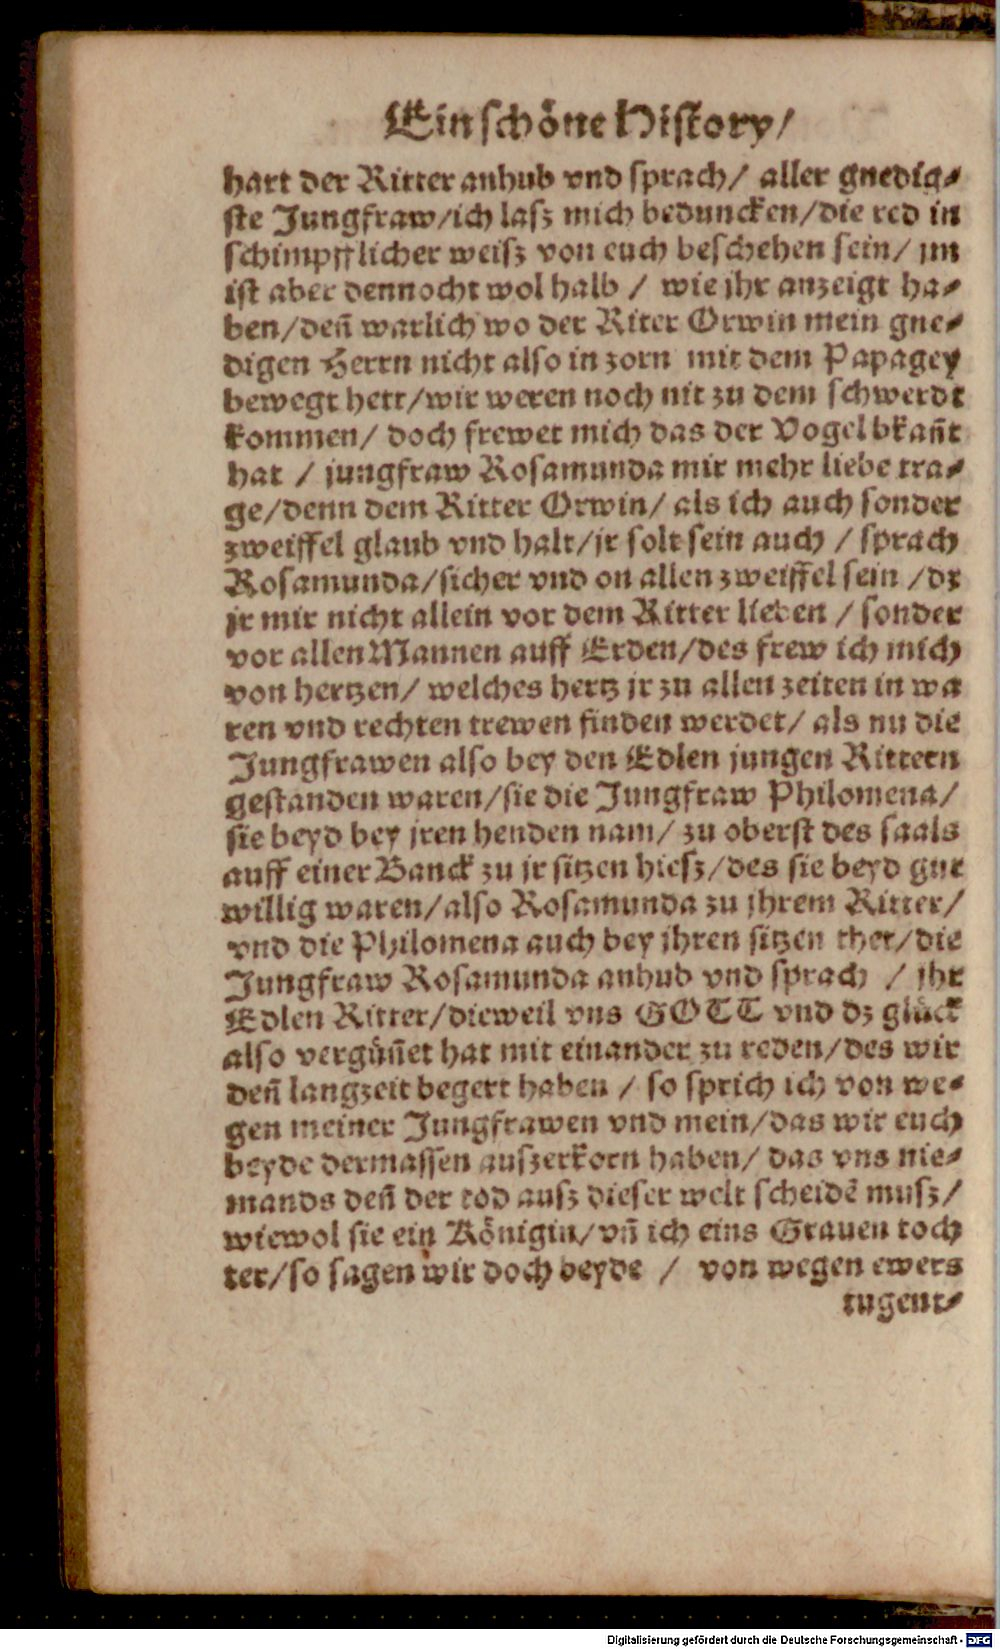 Ein schöne History/
hart der Ritter anhub vnd sprach/ aller gnedig-
ste Jungfraw/ich lasz mich beduncken/die red in
schimpfflicher weisz von euch beschehen sein/ jm
ist aber dennocht wol halb / wie jhr anzeigt ha-
ben/deñ warlich wo der Riter Orwin mein gne-
digen Herrn nicht also in zorn mit dem Papagey
bewegt hett/wir weren noch nit zu dem schwerdt
kommen/ doch frewet mich das der Vogel bkañt
hat / jungfraw Rosamunda mir mehr liebe tra-
ge/denn dem Ritter Orwin/ als ich auch sonder
zweiffel glaub vnd halt/jr solt sein auch / sprach
Rosamunda/sicher vnd on allen zweiffel sein /dz
jr mir nicht allein vor dem Ritter lieben / sonder
vor allen Mannen auff Erden/des frew ich mich
von hertzen/ welches hertz jr zu allen zeiten in wa
ren vnd rechten trewen finden werdet/ als nu die
Jungfrawen also bey den Edlen jungen Rittern
gestanden waren/sie die Jungfraw Philomena/
sie beyd bey jren henden nam/ zu oberst des saals
auff einer Banck zu jr sitzen hiesz/des sie beyd gut
willig waren/also Rosamunda zu jhrem Ritter/
vnd die Philomena auch bey jhren sitzen thet/die
Jungfraw Rosamunda anhub vnd sprach / jhr
Edlen Ritter/dieweil vns GOTT vnd dz glück
also vergüñet hat mit einander zu reden/des wir
deñ langzeit begert haben / so sprich ich von we-
gen meiner Jungfrawen vnd mein/das wir euch
beyde dermassen auszerkorn haben/ das vns nie-
mands deñ der tod ausz dieser welt scheidē musz/
wiewol sie ein Königin/vñ ich eins Grauen toch
ter/so sagen wir doch beyde / von wegen ewers
tugent-
Digitalisierung gefördert durch die Deutsche Forschungsgemeinschaft - DFG